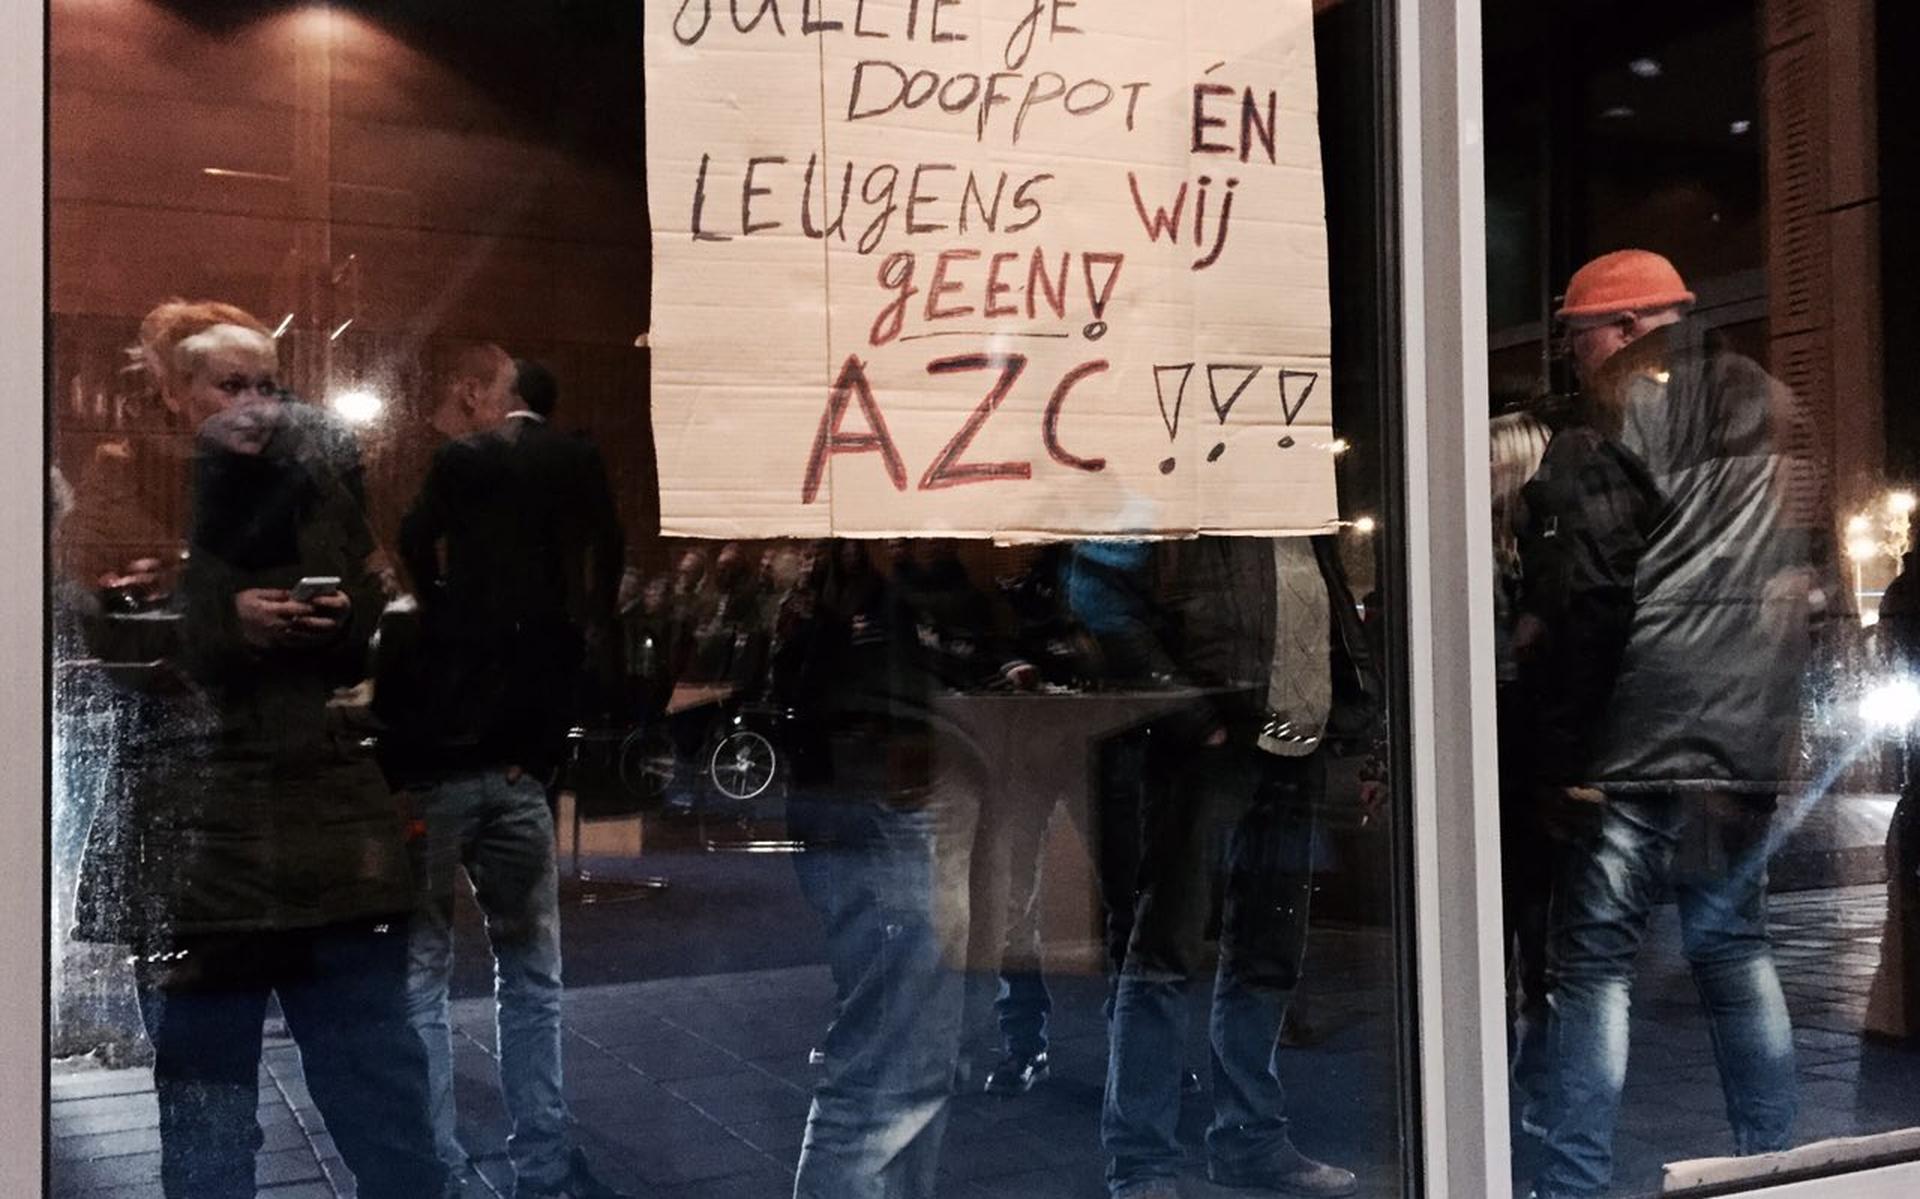 JULLIE JE
DOOFPOT ÉN
LEUGENS WIJ
GEEN!
AZC !!!